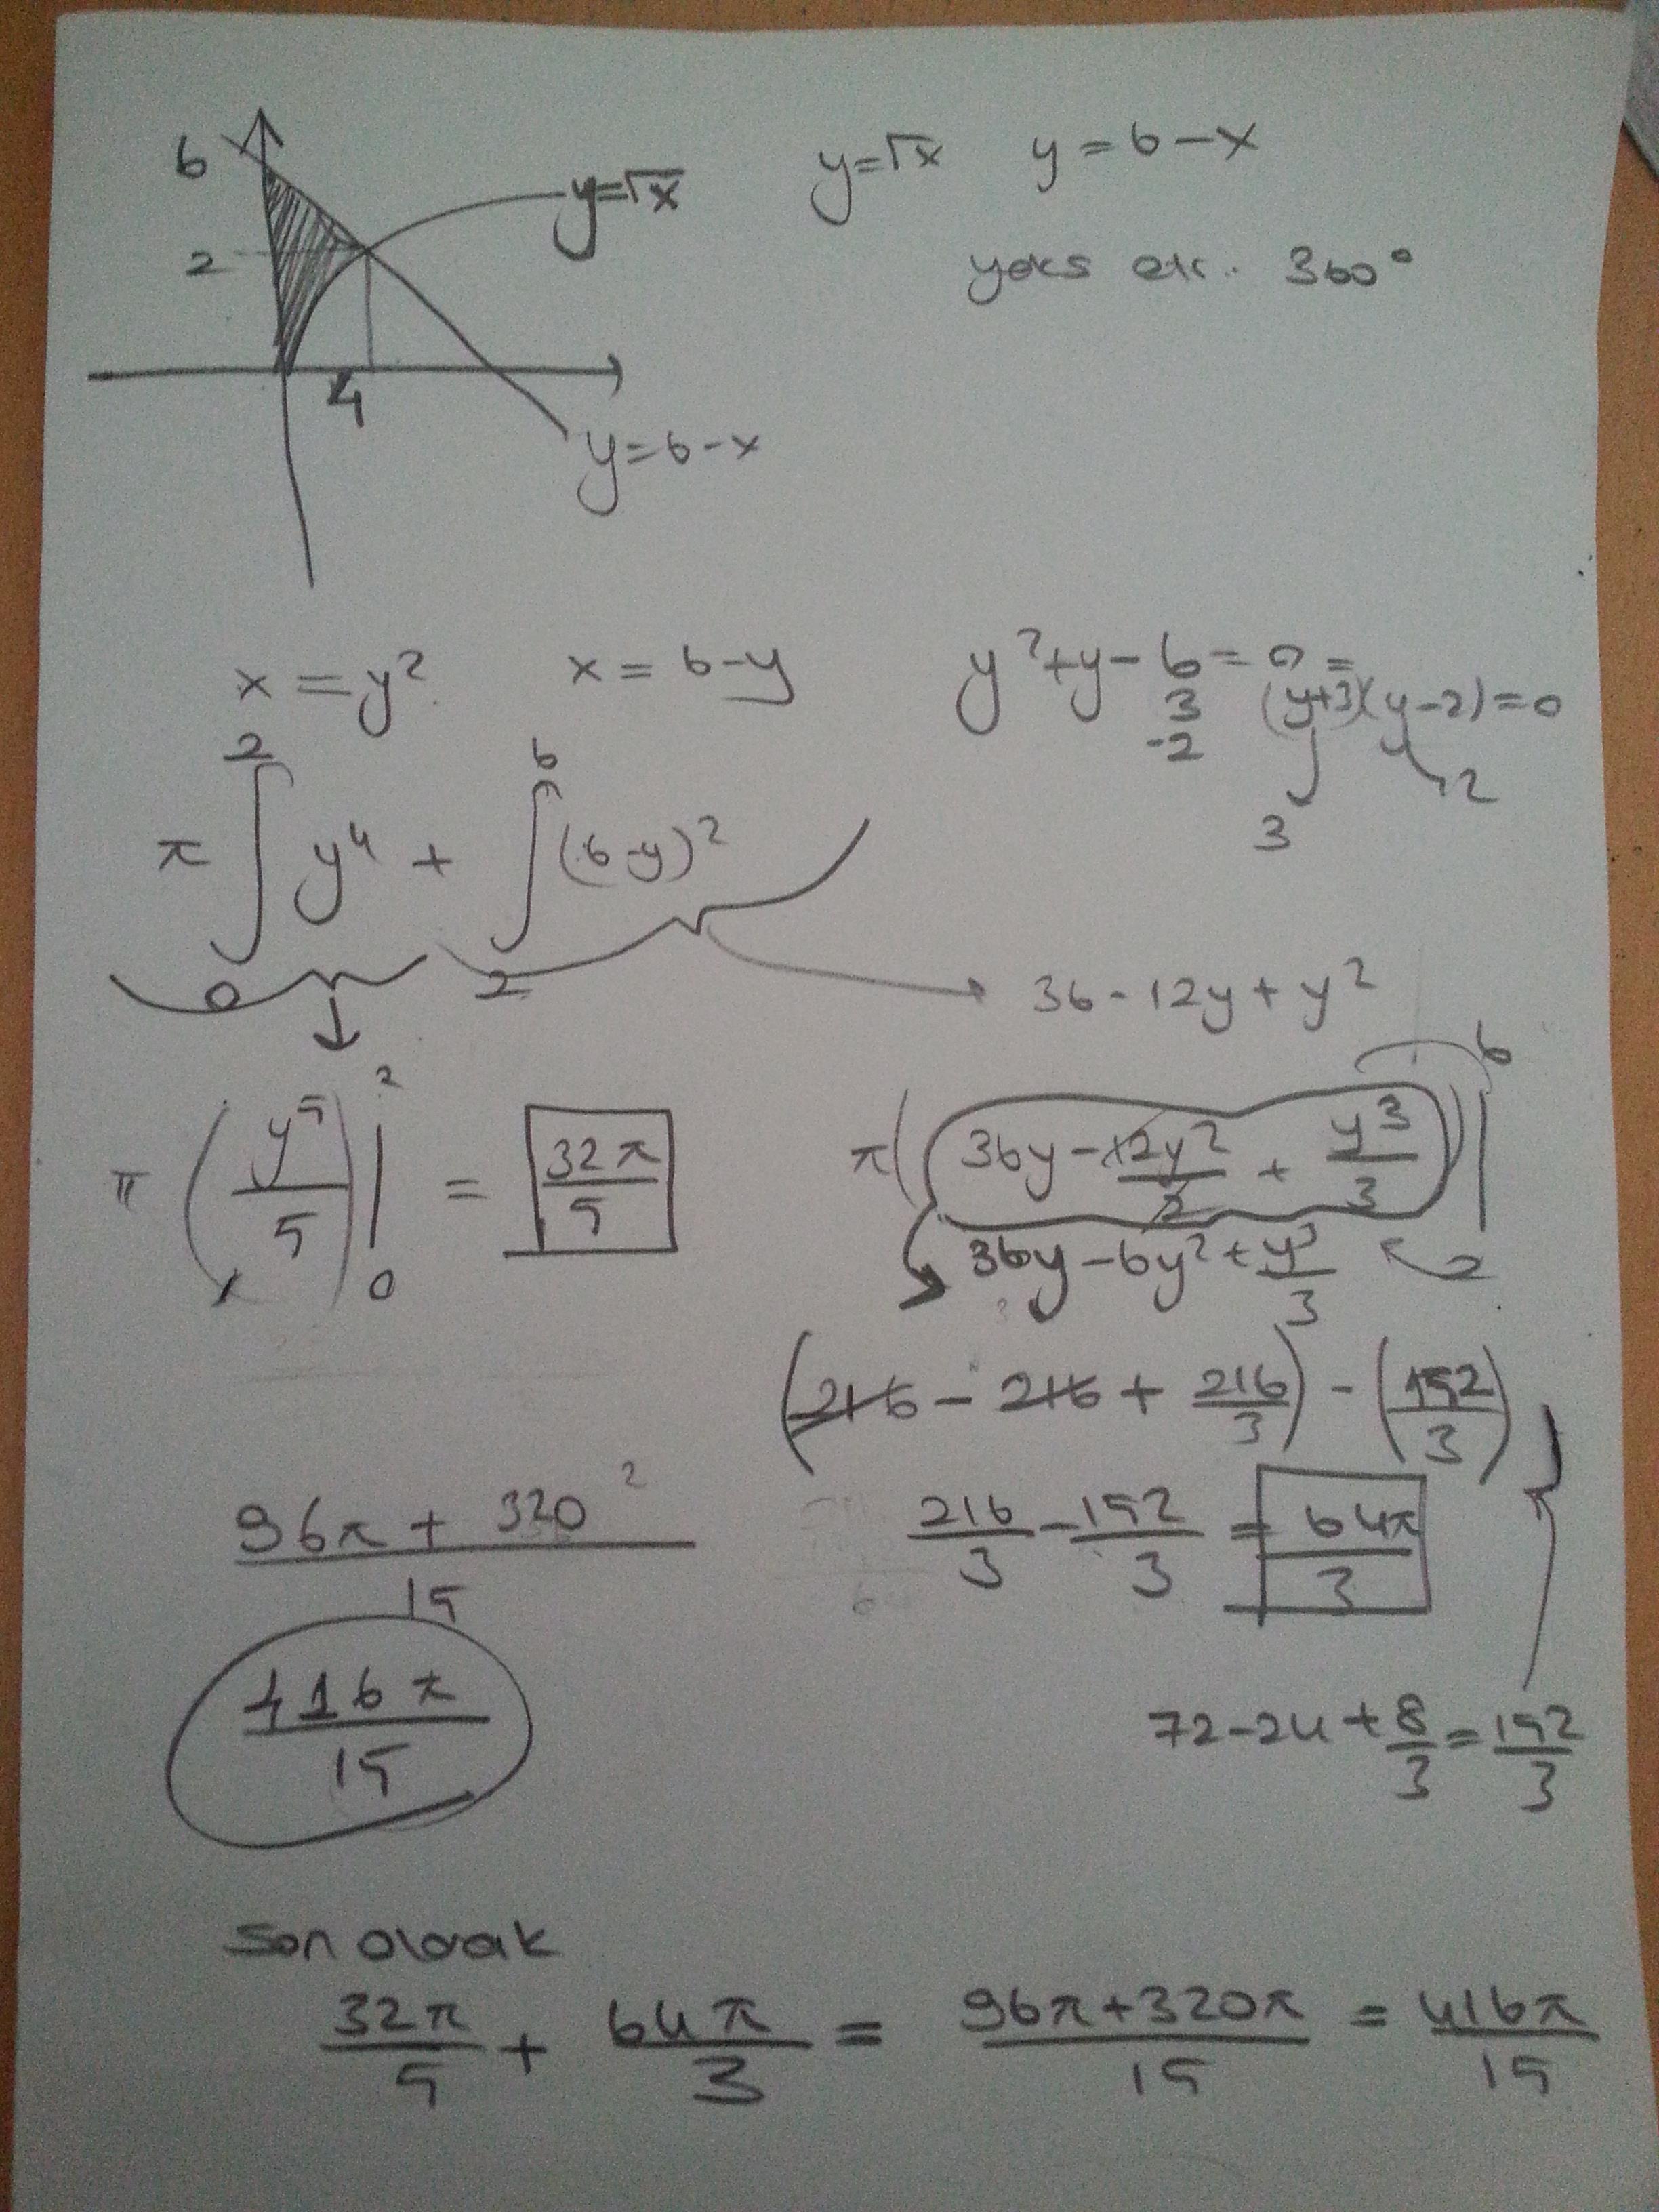 6
y=√x
2
4
y=6-x
y=√x y=6-x
yeks ek.. 360°
x=y² x=6-y y²+y-6=0=
3 (y+3)(y-2)=0
-2
3 2
π∫₀² y⁴ + ∫₂⁶ (6-y)²
36-12y+y²
π(y⁵/5)|₀² = 32π/5
π(36y-12y²/2+y³/3)|₂⁶
36y-6y²+y³/3
(216-216+216/3)-(152/3)
216/3-152/3=64π/3
96π+320/15
416π/15
72-24+8/3=152/3
Son olarak
32π/5+64π/3=96π+320π/15=416π/15